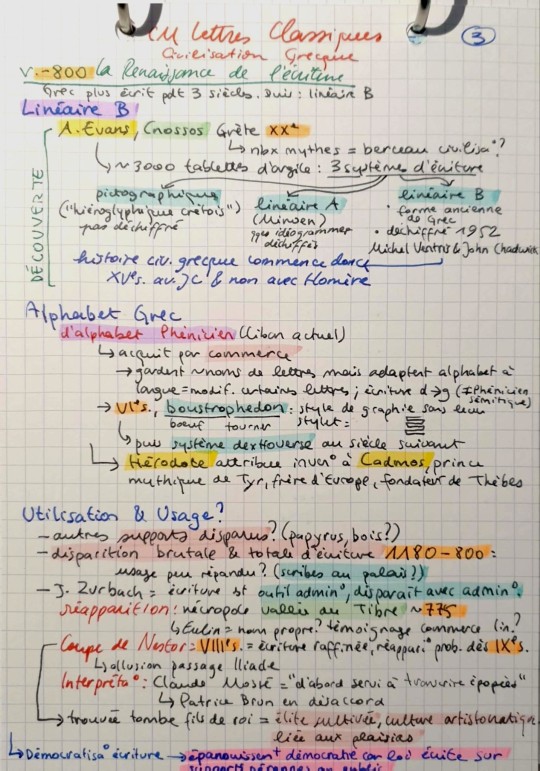 CM Lettres Classiques
3
Civilisation Grecque
v. -800 La Renaissance de l'écriture
Grec plus écrit pdt 3 siècles. Suis: linéaire B
Linéaire B
DÉCOUVERTE
A. Evans, Cnossos Crète XXe
↳ nbx mythes = berceau civilisa°?
↳ ~ 3000 tablettes d'argile : 3 systèmes d'écriture
pictographique linéaire A linéaire B
("hiéroglyphique crétois") (Minoen) • forme ancienne de Grec
pas déchiffré idéogrammes déchiffrés • déchiffré 1952
Michel Ventris & John Chadwick
histoire civ. grecque commence donc
XVes. av. JC & non avec Homère
Alphabet Grec
d'alphabet Phénicien (Liban actuel)
↳ acquit par commerce
→ gardent noms de lettres mais adaptent alphabet à
langue = modif. certaines lettres ; écriture d→g (Phénicien sémitique)
→ VIes., boustrophedon : style de graphie sans
boeuf tourner
↳ puis système dextroverse au siècle suivant
↳ Hérodote attribue inven° à Cadmos, prince
mythique de Tyr, frère d'Europe, fondateur de Thèbes
Utilisation & Usage?
- autres supports disparus? (papyrus, bois?)
- disparition brutale & totale d'écriture 1180-800 :
usage peu répandu? (scribes au palais?)
- J. Zurbach = écriture st outil admin°, disparaît avec admin°.
réapparition : nécropole vallée du Tibre ~775
↳ Eulin = nom propre? témoignage commerce lin.?
Coupe de Nestor = VIIIes. = écriture raffinée, réappari° prob. dès IXes.
↳ allusion passage Iliade
Interpréta° : Claude Mossé = "d'abord servi à transcrire épopées"
↳ Patrice Brun en désaccord
→ trouvée tombe fils de roi = élite cultivée, culture aristocratique
liée aux plaisirs
↳ Démocratisa° écriture → épanouissemt démocratie car loi écrite sur
supports pérennes au public